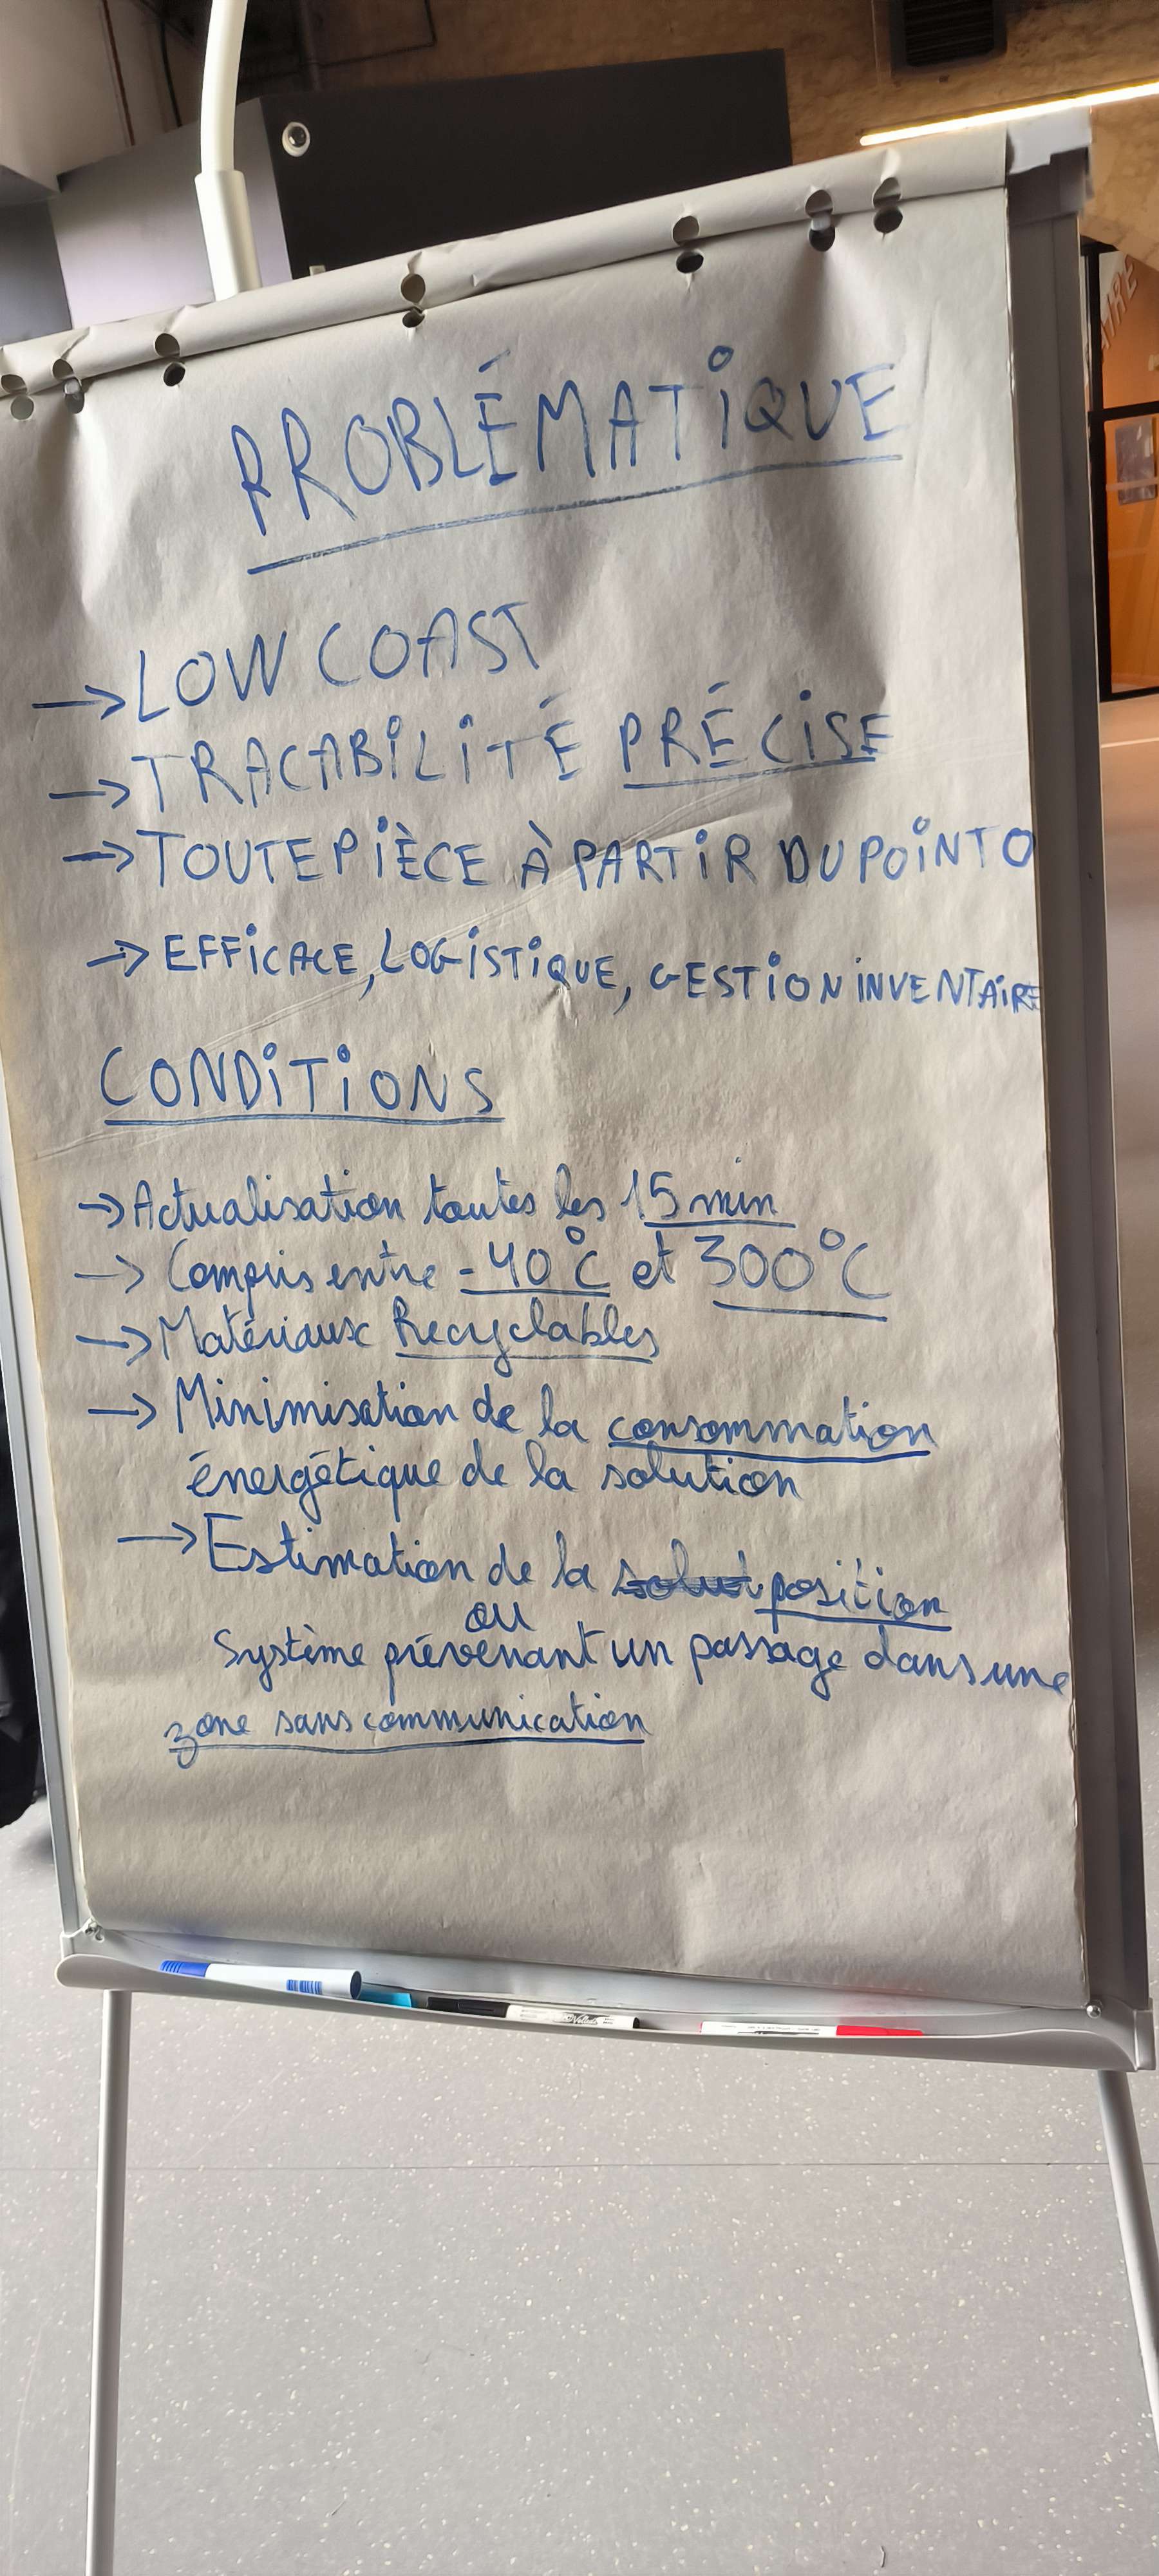 PROBLÉMATIQUE
→ LOW COAST
→ TRACABILITÉ PRÉCISE
→ TOUTE PIÈCE À PARTIR DU POINT O
→ EFFICACE, LOGISTIQUE, GESTION INVENTAIRE
CONDITIONS
→ Actualisation toutes les 15 min
→ Compris entre -40°C et 300°C
→ Matériaux Recyclables
→ Minimisation de la consommation
énergétique de la solution
→ Estimation de la solut position
ou
Système prévenant un passage dans une
zone sans communication